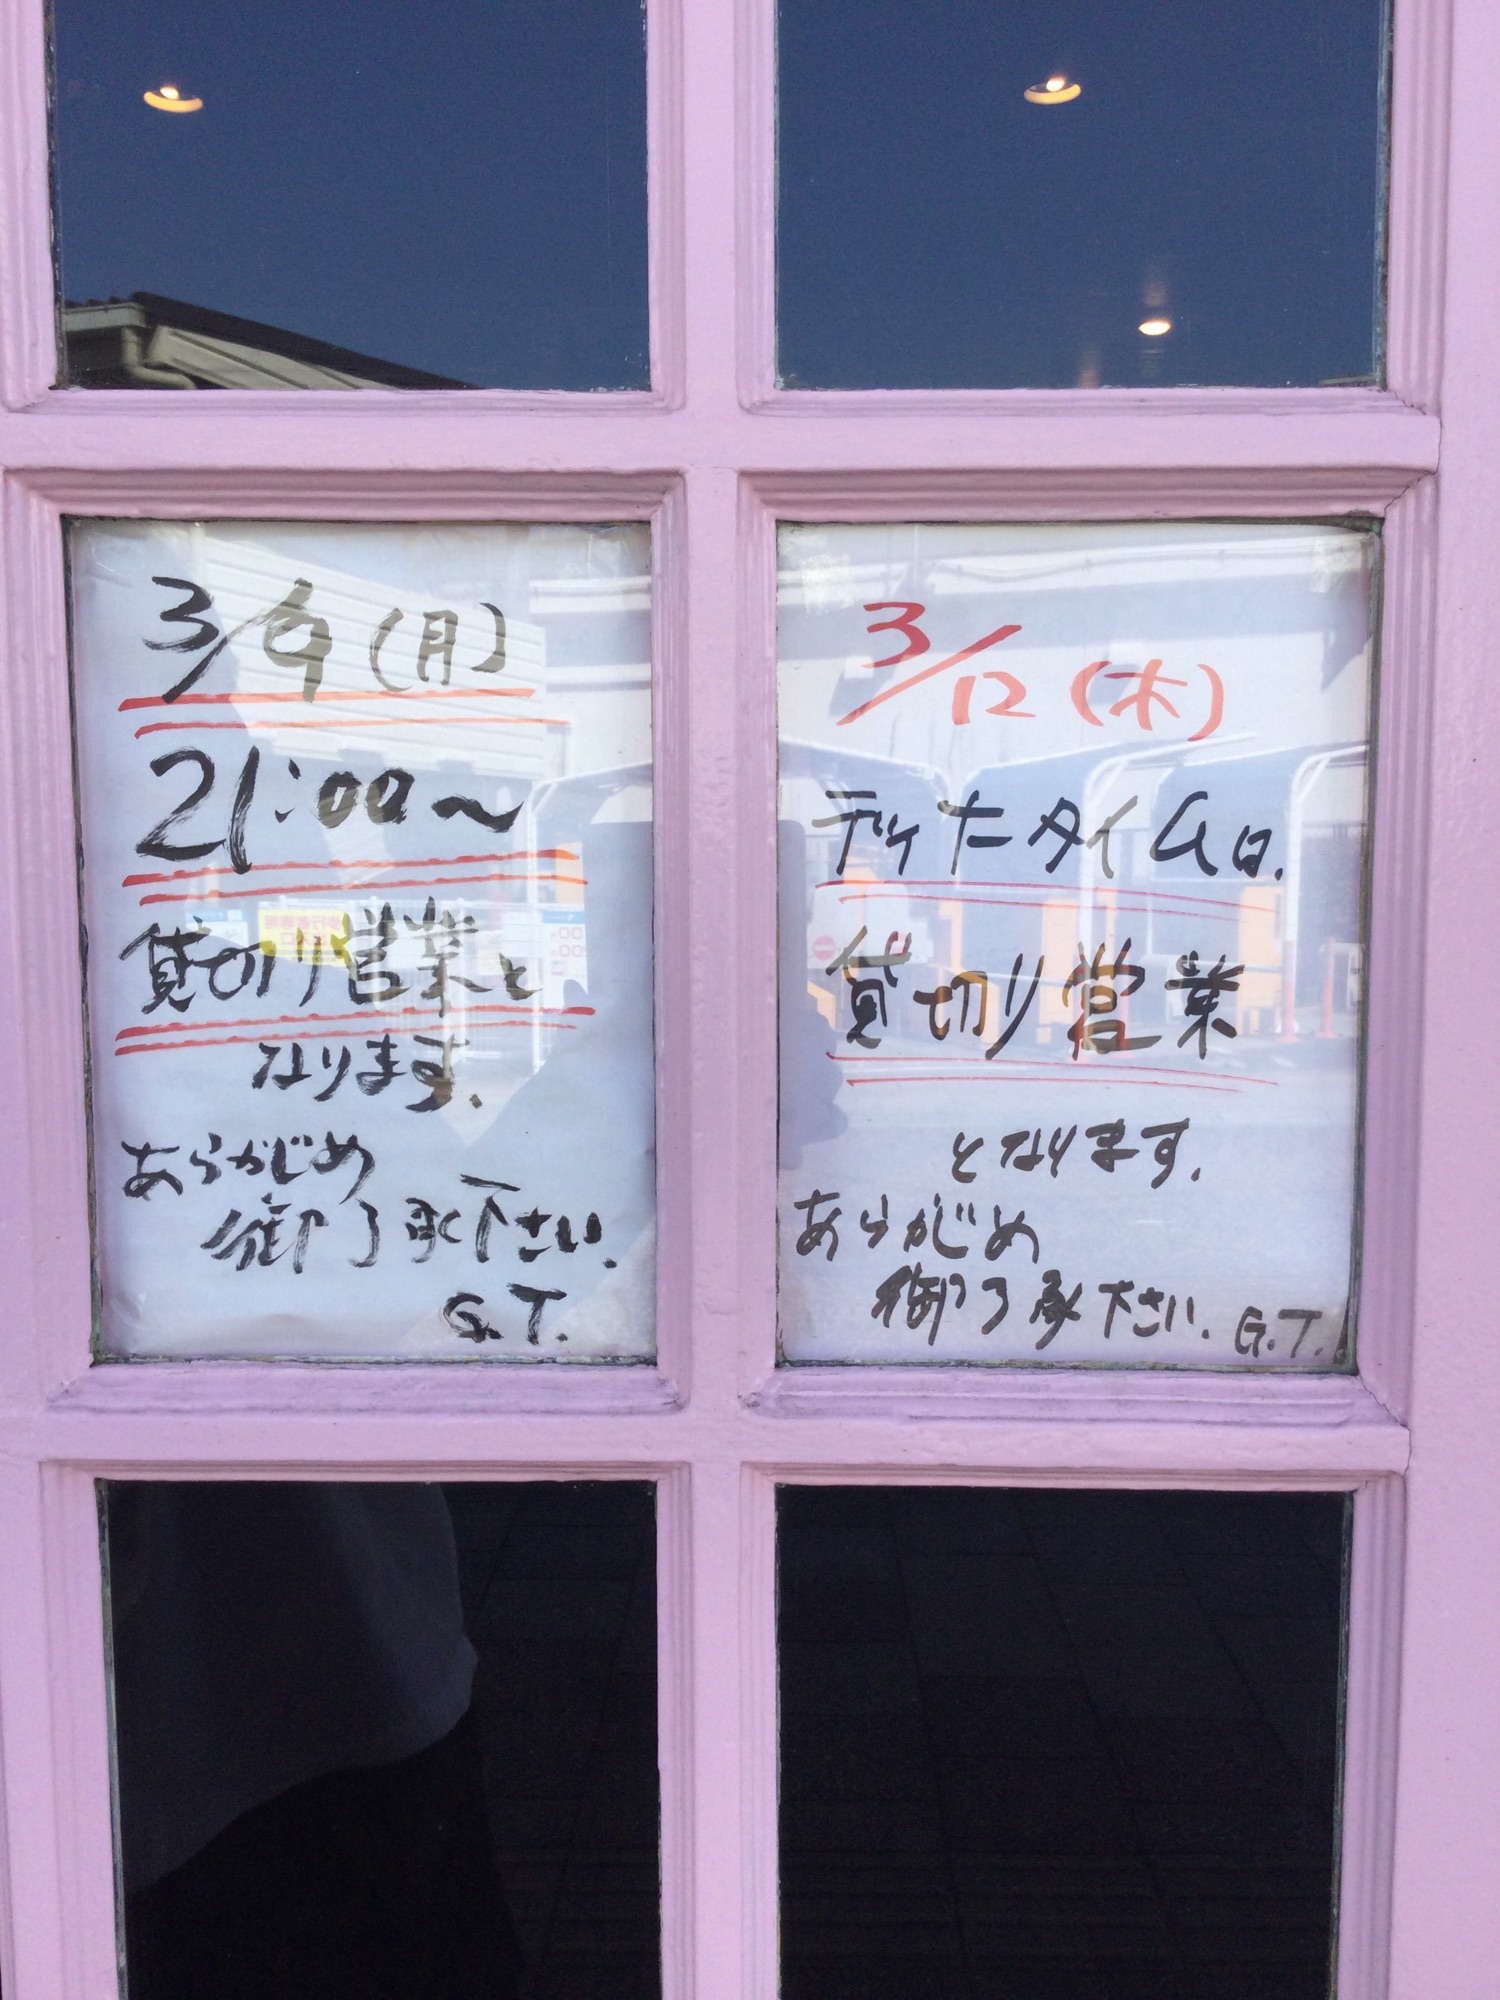 3/9(月)
21:00〜
貸切り営業と
なります.
あらかじめ
御了承下さい.
G.T.
3/12(木)
ディナータイムは.
貸切り営業
となります.
あらかじめ
御了承下さい. G.T.